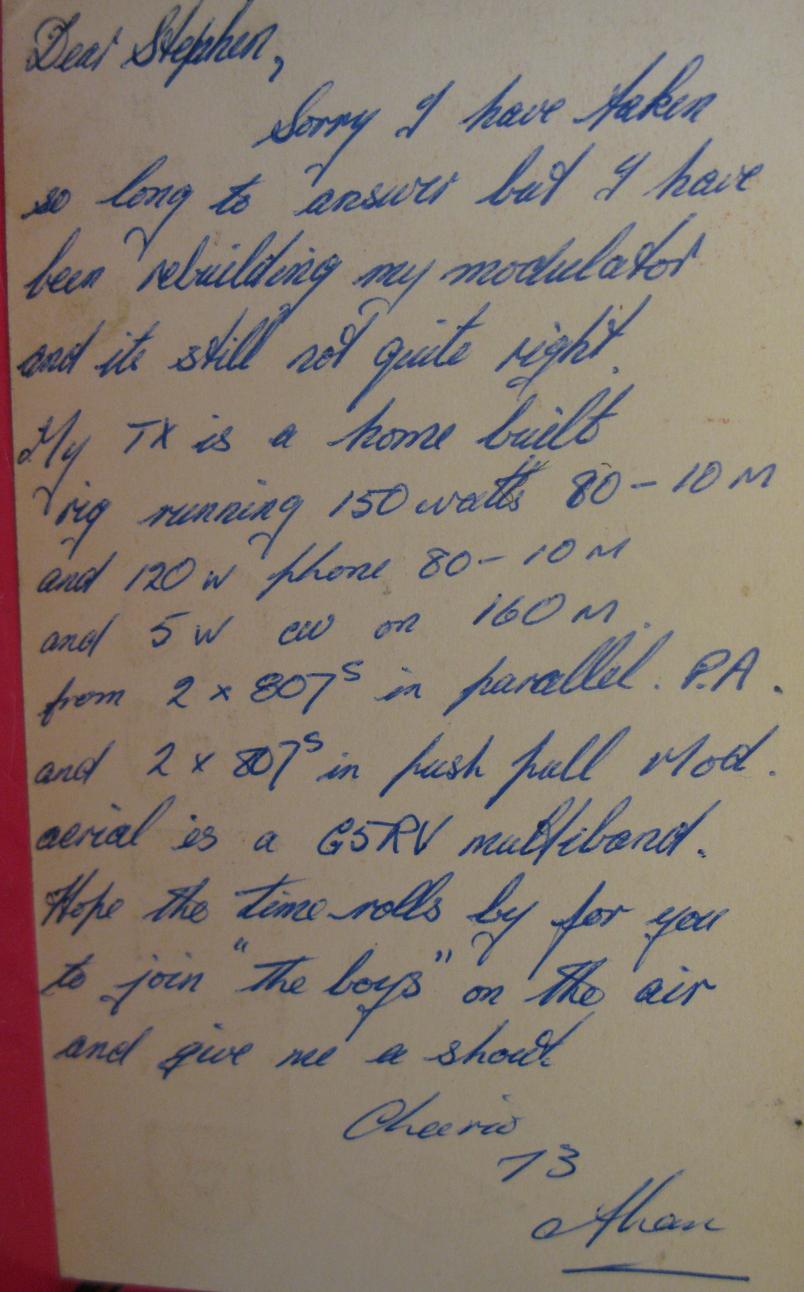 Dear Stephen,
Sorry I have taken
so long to answer but I have
been rebuilding my modulator
and its still not quite right.
My TX is a home built
rig running 150 watts 80-10 M
and 120 W phone 80-10 M
and 5 W cw on 160 M.
from 2 x 807s in parallel. P.A.
and 2 x 807s in push pull Mod.
aerial is a G5RV multiband.
Hope the time rolls by for you
to join "the boys" on the air
and give me a shout.
Cheerio
73
Alan